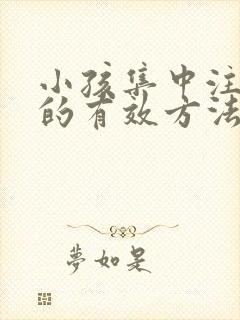 小孩集中注
的有效方法
夢如是